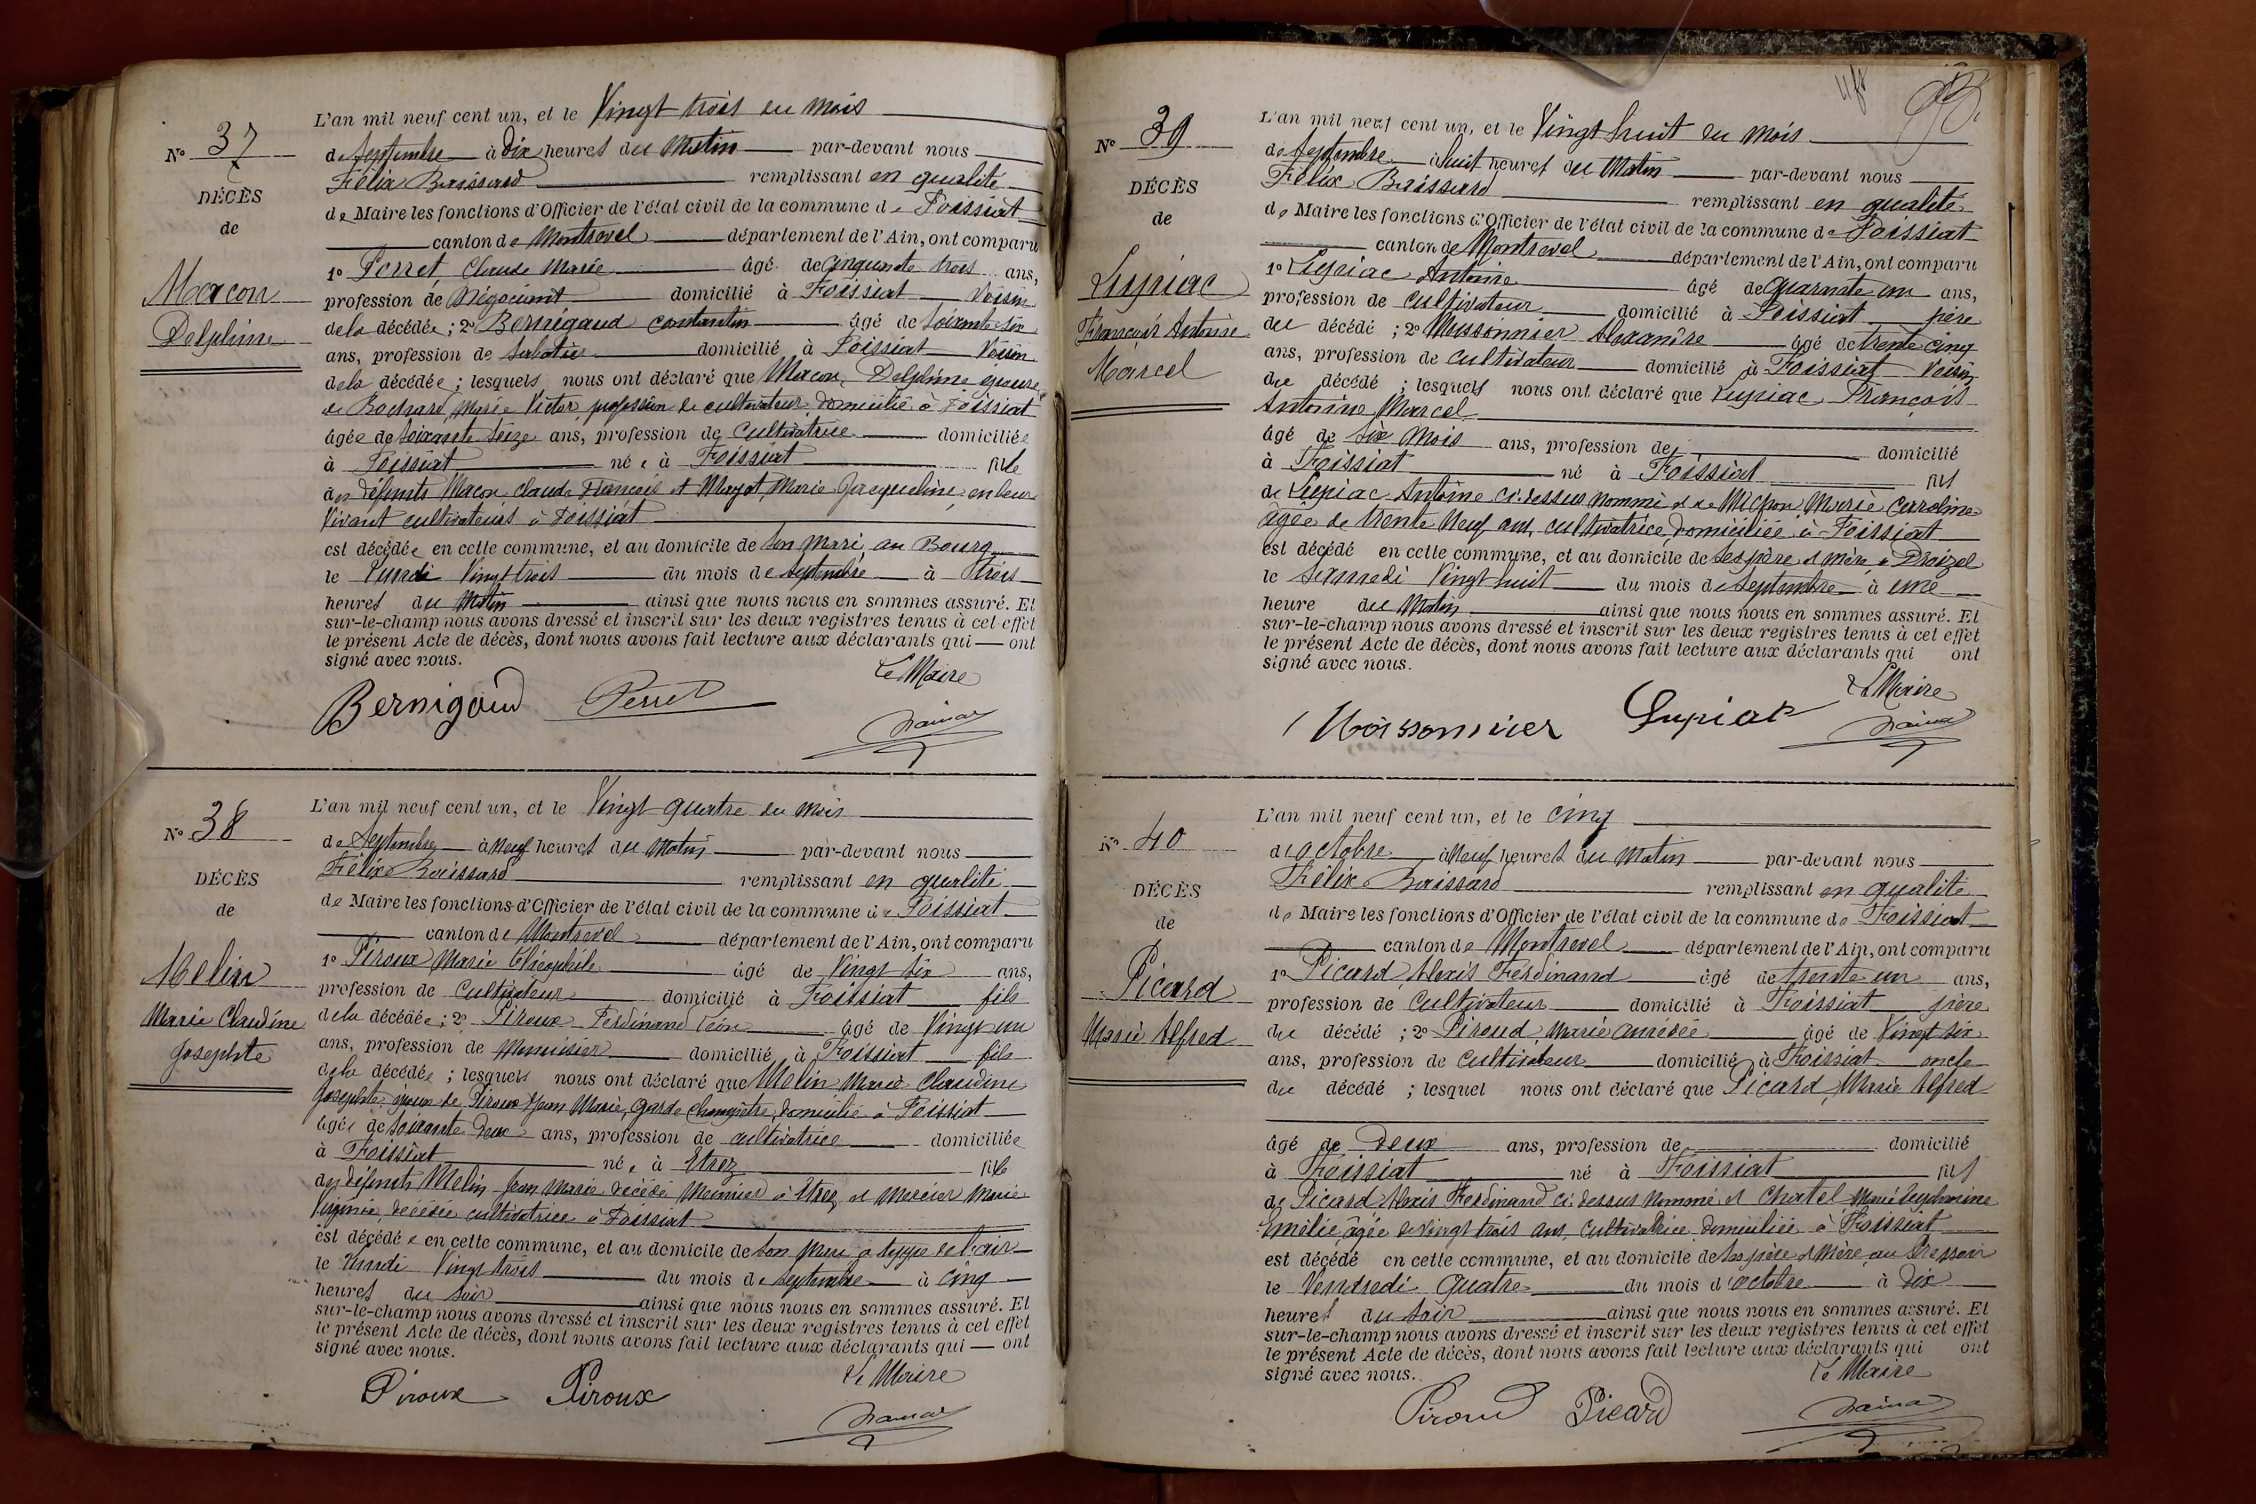 N° 37
DÉCÈS
de
Macon
Delphine
L'an mil neuf cent un, et le Vingt trois du mois
de Septembre à dix heures du Matin par-devant nous
Félix Boissard remplissant en qualité
de Maire les fonctions d'Officier de l'état civil de la commune de Foissiat
canton de Montrevel département de l'Ain, ont comparu
1° Perret, Claude Marie âgé de cinquante trois ans,
profession de Négociant domicilié à Foissiat Voisin
de la décédée ; 2° Bernigaud Constantin âgé de soixante six
ans, profession de Sabotier domicilié à Foissiat Voisin
de la décédée ; lesquels nous ont déclaré que Macon, Delphine épouse
de Bochard, Marie Victor profession de cultivateur, domicilié à Foissiat
âgée de soixante seize ans, profession de cultivatrice domiciliée
à Foissiat née à Foissiat fille
des défunts Macon Claude François et Mayot, Marie Jacqueline, en leur
Vivant cultivateurs à Foissiat
est décédée en cette commune, et au domicile de son Mari, au Bourg
le Lundi Vingt trois du mois de Septembre à trois
heures du Matin ainsi que nous nous en sommes assuré. Et
sur-le-champ nous avons dressé et inscrit sur les deux registres tenus à cet effet
le présent Acte de décès, dont nous avons fait lecture aux déclarants qui ont
signé avec nous.
Le Maire
Bernigaud Perret
N° 38
DÉCÈS
de
Melin
Marie Claudine
Josephte
L'an mil neuf cent un, et le Vingt quatre du mois
de Septembre à Neuf heures du Matin par-devant nous
Félix Boissard remplissant en qualité
de Maire les fonctions d'Officier de l'état civil de la commune de Foissiat
canton de Montrevel département de l'Ain, ont comparu
1° Piroux Marie Théophile âgé de Vingt six ans,
profession de Cultivateur domicilié à Foissiat fils
de la décédée ; 2° Piroux Ferdinand Léon âgé de Vingt un
ans, profession de Menuisier domicilié à Foissiat fils
de la décédée ; lesquels nous ont déclaré que Melin Marie Claudine
Josephte épouse de Piroux Jean Marie, garde champêtre, domicilié à Foissiat
âgée de soixante deux ans, profession de cultivatrice domiciliée
à Foissiat née à Etrez fille
des défunts Melin Jean Marie décédé Meunier à Etrez et Mercier Marie
Virginie, décédée cultivatrice à Foissiat
est décédée en cette commune, et au domicile de son
le Lundi Vingt trois du mois de Septembre à cinq
heures du soir ainsi que nous nous en sommes assuré. Et
sur-le-champ nous avons dressé et inscrit sur les deux registres tenus à cet effet
le présent Acte de décès, dont nous avons fait lecture aux déclarants qui ont
signé avec nous.
Le Maire
Piroux Piroux
N° 39
DÉCÈS
de
Lupiac
François Antoine
Marcel
L'an mil neuf cent un, et le Vingt huit du mois
de Septembre à huit heures du Matin par-devant nous
Félix Boissard remplissant en qualité
de Maire les fonctions d'Officier de l'état civil de la commune de Foissiat
canton de Montrevel département de l'Ain, ont comparu
1° Lupiac Antoine âgé de quarante un ans,
profession de cultivateur domicilié à Foissiat père
du décédé ; 2° Moissonnier Alexandre âgé de trente cinq
ans, profession de cultivateur domicilié à Foissiat Voisin
du décédé ; lesquels nous ont déclaré que Lupiac François
Antoine Marcel
âgé de six mois ans, profession de domicilié
à Foissiat né à Foissiat fils
de Lupiac Antoine ci-dessus nommé et de Michon Marie Caroline
âgée de trente neuf ans, cultivatrice, domiciliée à Foissiat
est décédé en cette commune, et au domicile de ses père et mère, à
le samedi Vingt huit du mois de Septembre à une
heure du Matin ainsi que nous nous en sommes assuré. Et
sur-le-champ nous avons dressé et inscrit sur les deux registres tenus à cet effet
le présent Acte de décès, dont nous avons fait lecture aux déclarants qui ont
signé avec nous.
Le Maire
Moissonnier Lupiac
N° 40
DÉCÈS
de
Picard
Marie Alfred
L'an mil neuf cent un, et le cinq
d'octobre à Neuf heures du Matin par-devant nous
Félix Boissard remplissant en qualité
de Maire les fonctions d'Officier de l'état civil de la commune de Foissiat
canton de Montrevel département de l'Ain, ont comparu
1° Picard Alexis Ferdinand âgé de trente un ans,
profession de Cultivateur domicilié à Foissiat père
du décédé ; 2° Piroud, Marie Amédée âgé de Vingt six
ans, profession de cultivateur domicilié à Foissiat oncle
du décédé ; lesquel nous ont déclaré que Picard, Marie Alfred
âgé de Deux ans, profession de domicilié
à Foissiat né à Foissiat fils
de Picard Alexis Ferdinand ci-dessus nommé et Chatel Marie
Amélie, âgée de vingt trois ans, Cultivatrice domiciliée à Foissiat
est décédé en cette commune, et au domicile de ses père et Mère, au Pressoir
le Vendredi quatre du mois d'octobre à dix
heures du soir ainsi que nous nous en sommes assuré. Et
sur-le-champ nous avons dressé et inscrit sur les deux registres tenus à cet effet
le présent Acte de décès, dont nous avons fait lecture aux déclarants qui ont
signé avec nous.
Le Maire
Piroud Picard